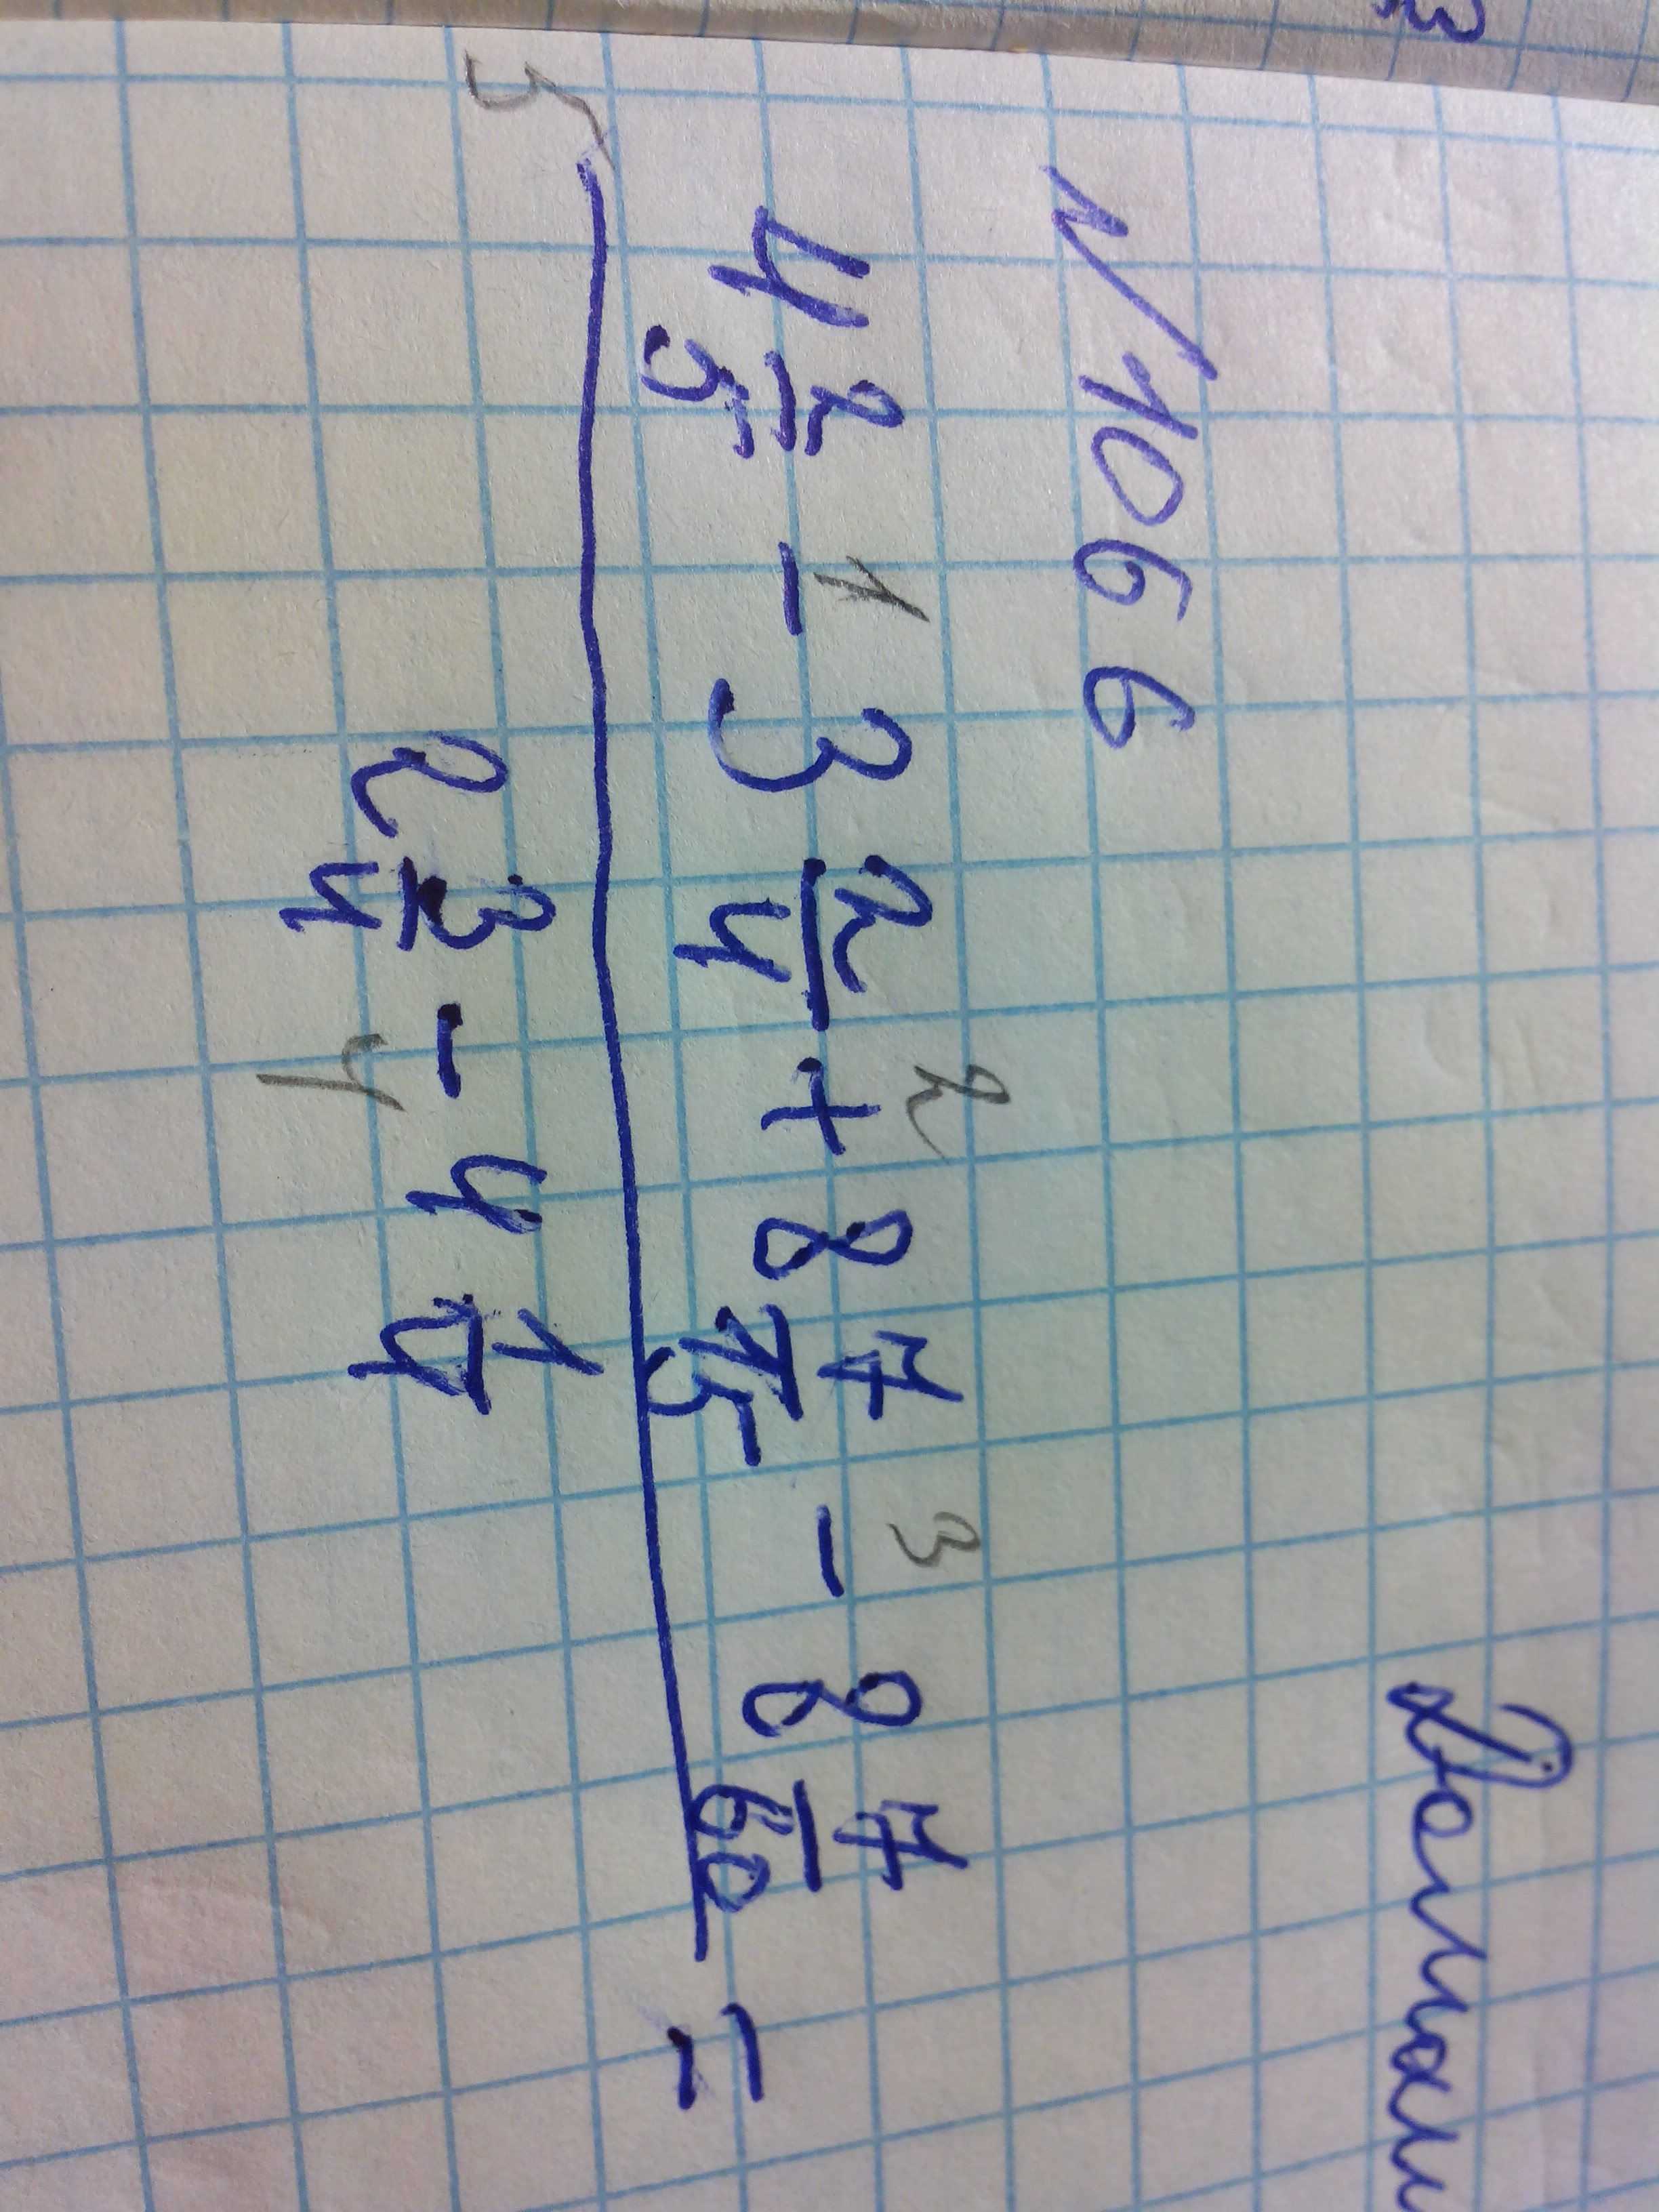 Домаш
N 1066
4 2/5 - 3 2/4 + 8 7/15 - 8 7/60 =
2 3/4 - 4 1/4
1 2 3 4 5